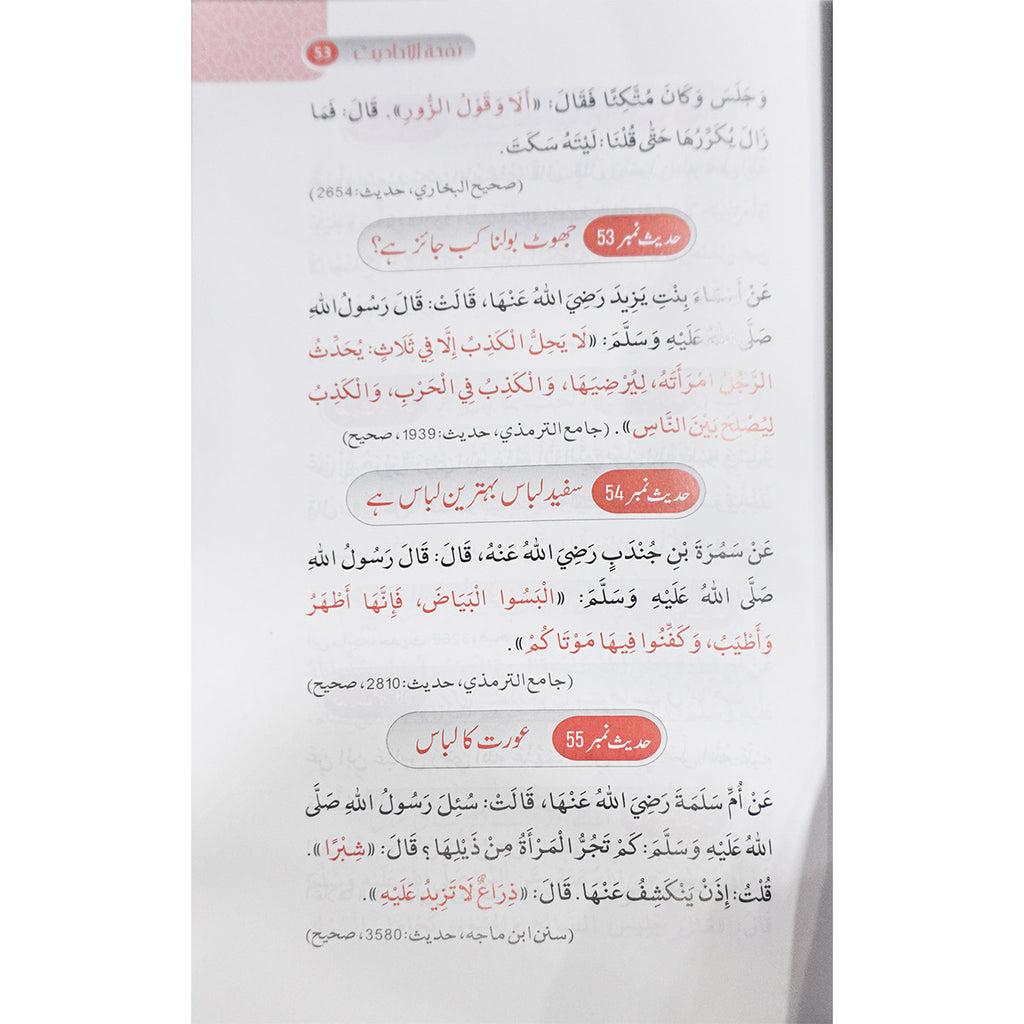 نفحة الأحاديث 53
وَجَلَسَ وَكَانَ مُتَّكِئًا فَقَالَ: «أَلَا وَقَوْلُ الزُّورِ». قَالَ: فَمَا
زَالَ يُكَرِّرُهَا حَتَّى قُلْنَا: لَيْتَهُ سَكَتَ.
(صحيح البخاري، حديث: 2654)
حدیث نمبر 53 جھوٹ بولنا کب جائز ہے؟
عَنْ أَسْمَاءَ بِنْتِ يَزِيدَ رَضِيَ اللهُ عَنْهَا، قَالَتْ: قَالَ رَسُولُ اللهِ
صَلَّى اللهُ عَلَيْهِ وَسَلَّمَ: «لَا يَحِلُّ الْكَذِبُ إِلَّا فِي ثَلَاثٍ: يُحَدِّثُ
الرَّجُلُ امْرَأَتَهُ، لِيُرْضِيَهَا، وَالْكَذِبُ فِي الْحَرْبِ، وَالْكَذِبُ
لِيُصْلِحَ بَيْنَ النَّاسِ». (جامع الترمذي، حديث: 1939، صحيح)
حدیث نمبر 54 سفید لباس بہترین لباس ہے
عَنْ سَمُرَةَ بْنِ جُنْدَبٍ رَضِيَ اللهُ عَنْهُ، قَالَ: قَالَ رَسُولُ اللهِ
صَلَّى اللهُ عَلَيْهِ وَسَلَّمَ: «الْبَسُوا الْبَيَاضَ، فَإِنَّهَا أَطْهَرُ
وَأَطْيَبُ، وَكَفِّنُوا فِيهَا مَوْتَاكُمْ».
(جامع الترمذي، حديث: 2810، صحيح)
حدیث نمبر 55 عورت کا لباس
عَنْ أُمِّ سَلَمَةَ رَضِيَ اللهُ عَنْهَا، قَالَتْ: سُئِلَ رَسُولُ اللهِ صَلَّى
اللهُ عَلَيْهِ وَسَلَّمَ: كَمْ تَجُرُّ الْمَرْأَةُ مِنْ ذَيْلِهَا؟ قَالَ: «شِبْرًا».
قُلْتُ: إِذَنْ يَنْكَشِفُ عَنْهَا. قَالَ: «ذِرَاعٌ لَا تَزِيدُ عَلَيْهِ».
(سنن ابن ماجه، حديث: 3580، صحيح)